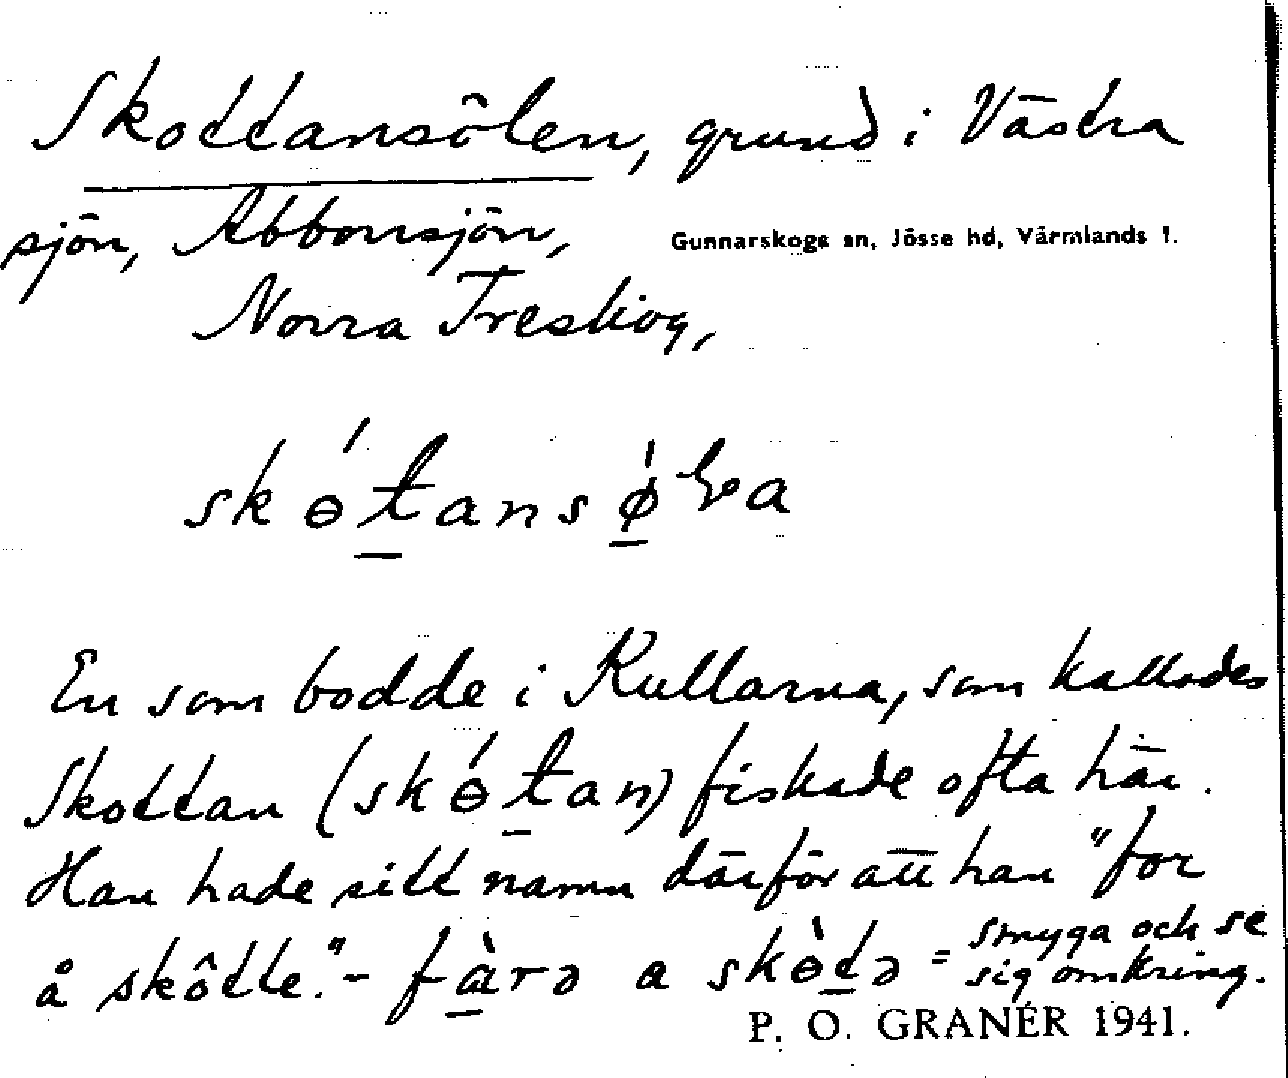 Skottansölen, grund i Västra
sjön, Abborrsjön,
Gunnarskogs sn, Jösse hd, Värmlands l.
Norra Treskog,
En som bodde i Kullarna, som kallades
Skottan (skótan) fiskade ofta här.
Han hade sitt namn därför att han "for
å skôtte." - fàrə a skɵ̀tə = smyga och se
sig omkring.
P. O. GRANÉR 1941.